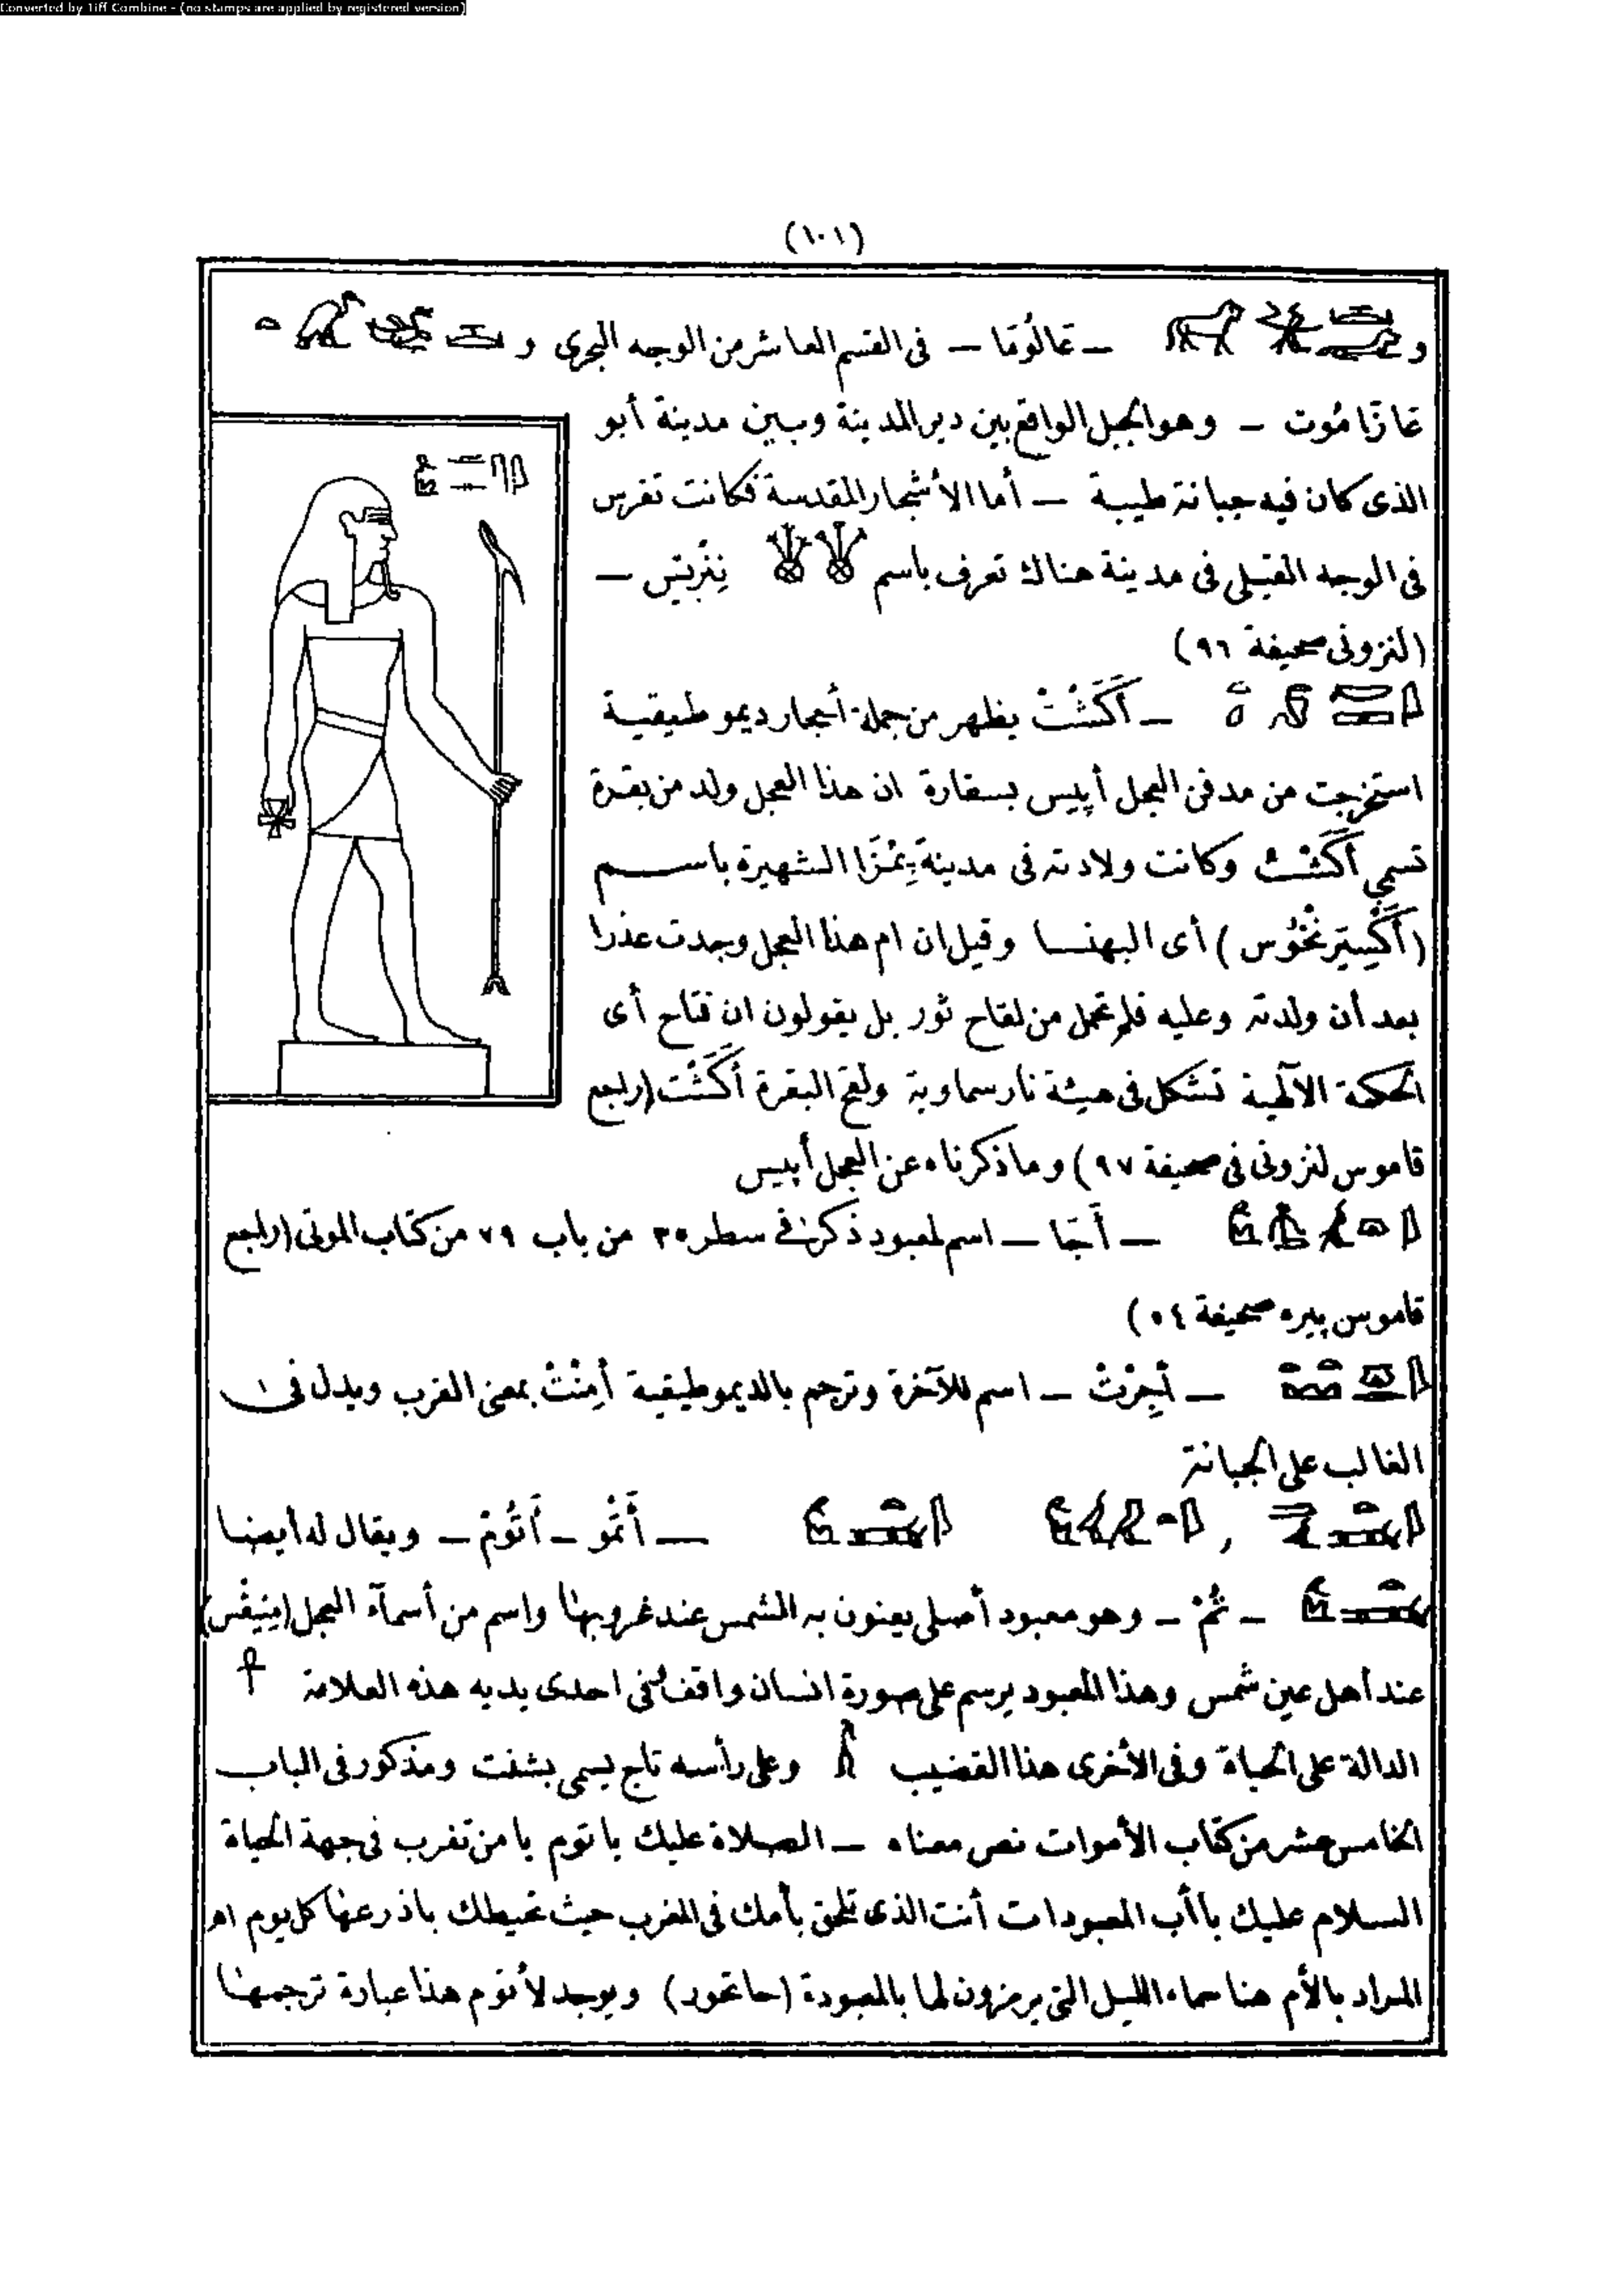 Converted by Tiff Combine - (no stamps are applied by registered version)
(١٠١)
و — عَالُومَا — فى القسم العاشر من الوجه البحرى و
عَازَامُوت — وهو الجبل الواقع بين دير المدينة وبين مدينة أبو
الذى كان فيه جبانة طيبة — أما الأشجار المقدسة فكانت تغرس
فى الوجه القبلى فى مدينة هناك تعرف باسم —
(لنزونى صحيفة ٩٦)
— أَكَشْتْ يظهر من جملة أحجار ديموطيقية
استخرجت من مدفن العجل أپيس بسقارة ان هذا العجل ولد من بقرة
تسمى أكَشْت وكانت ولادته فى مدينة الشهيرة باسم
(أكْسِيرِنْخُوس) أى البهنسا وقيل ان ام هذا العجل وجدت عذرا
بعد أن ولدته وعليه فلم تحمل من لقاح ثور بل يقولون ان فتاح أى
الحكمة الآلهية تشكل فى هيئة نار سماوية ولقح البقرة أكَشْت (راجع
قاموس لنزونى فى صحيفة ٩٧) وما ذكرناه عن العجل أپيس
— أَجَا — اسم لمعبود ذكر فى سطر ٣٥ من باب ٧٩ من كتاب الموتى (راجع
قاموس پيره صحيفة ٥٤)
— أَجِرْتْ — اسم للآخرة وترجم بالديموطيقية أمِنْتْ بمعنى الغرب ويدل فى
الغالب على الجبانة
, — أَتْمُو — أَتُومْ — ويقال له أيضا
— تُمْ — وهو معبود أصلى يعنون به الشمس عند غروبها واسم من أسمآء العجل (مِنِيفْس)
عند أهل عين شمس وهذا المعبود يرسم على صورة انسان واقف فى احدى يديه هذه العلامة
الدالة على الحياة وفى الأخرى هذا القضيب وعلى رأسه تاج يسمى بشنت ومذكور فى الباب
الخامس عشر من كتاب الأموات نص معناه — الصلاة عليك يا توم يا من تغرب فى جهة الحياة
السلام عليك يا أب المعبودات أنت الذى تلحق بأمك فى المغرب حيث تحيطك باذرعها كل يوم اه
المراد بالأم هنا سماء الليل التى يرمزون لها بالمعبودة (حاتحور) ويوجد لأتوم هذا عبارة ترجمتها